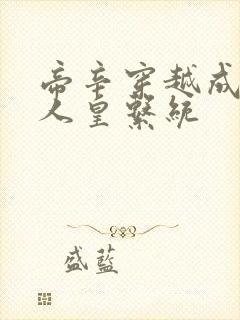 帝辛穿越成
人皇繫統
盛藍